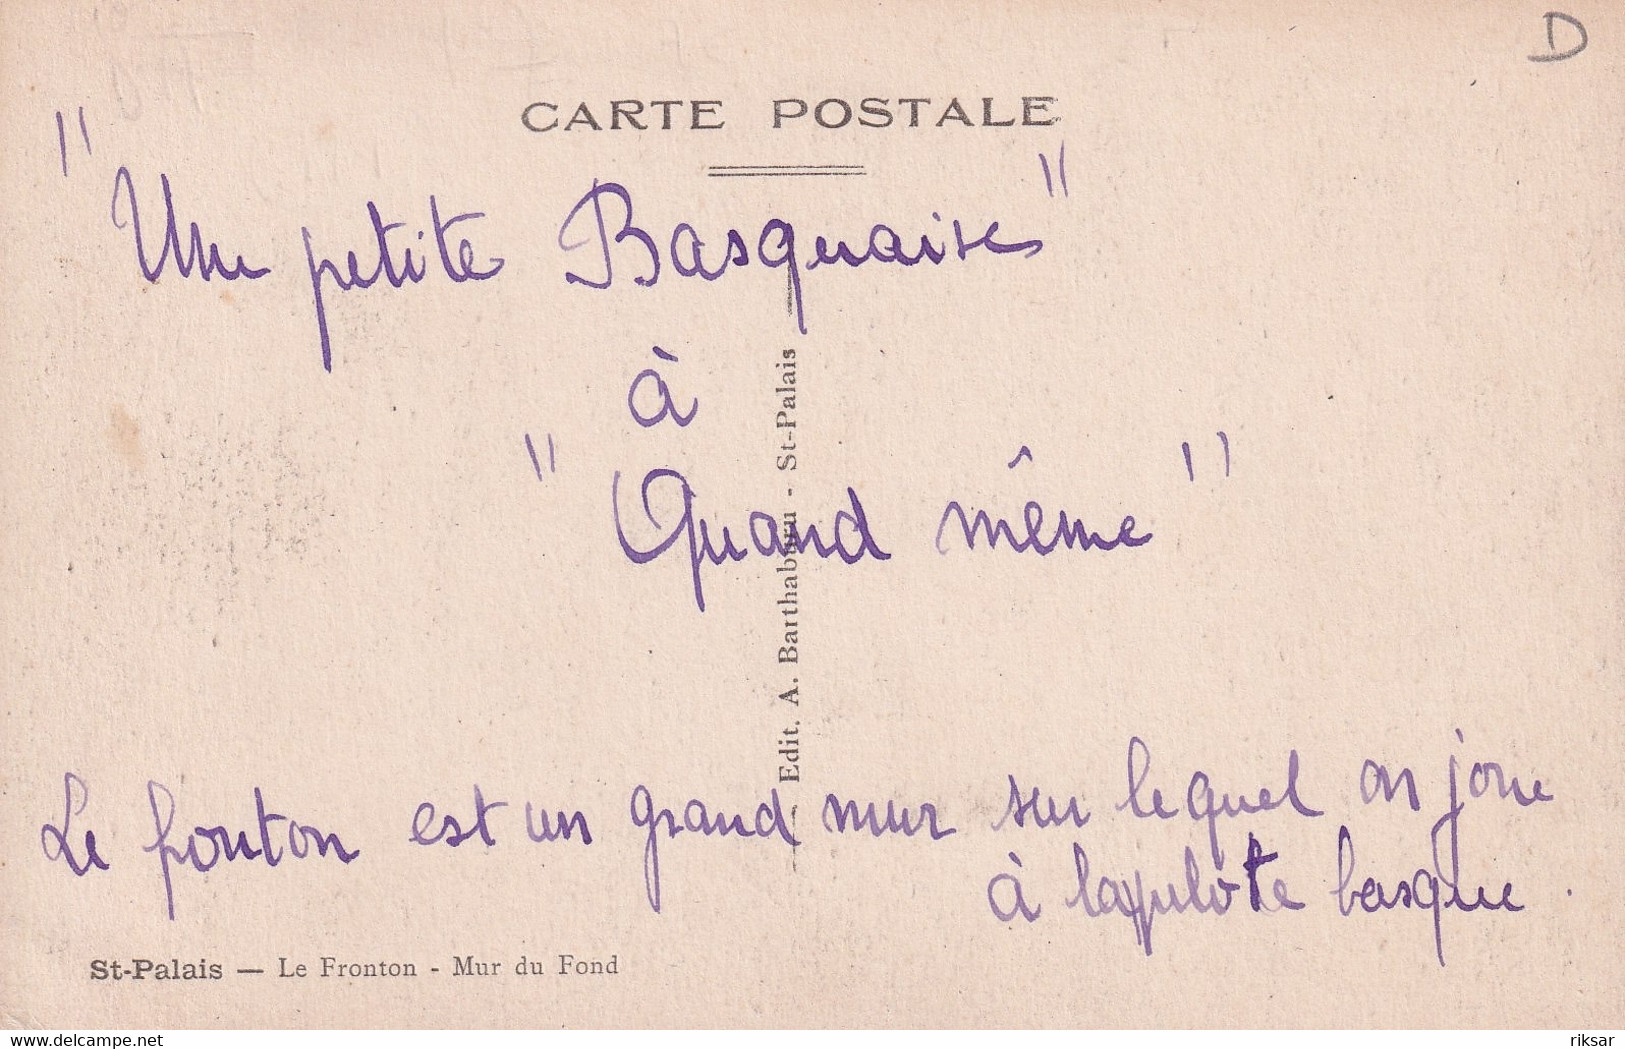 D
CARTE POSTALE
"Une petite Basquaise"
à
"Quand même"
Edit. A. Barthaburu - St-Palais
Le fronton est un grand mur sur lequel on joue
à la pelote basque.
St-Palais — Le Fronton - Mur du Fond
delcampe.net
riksar